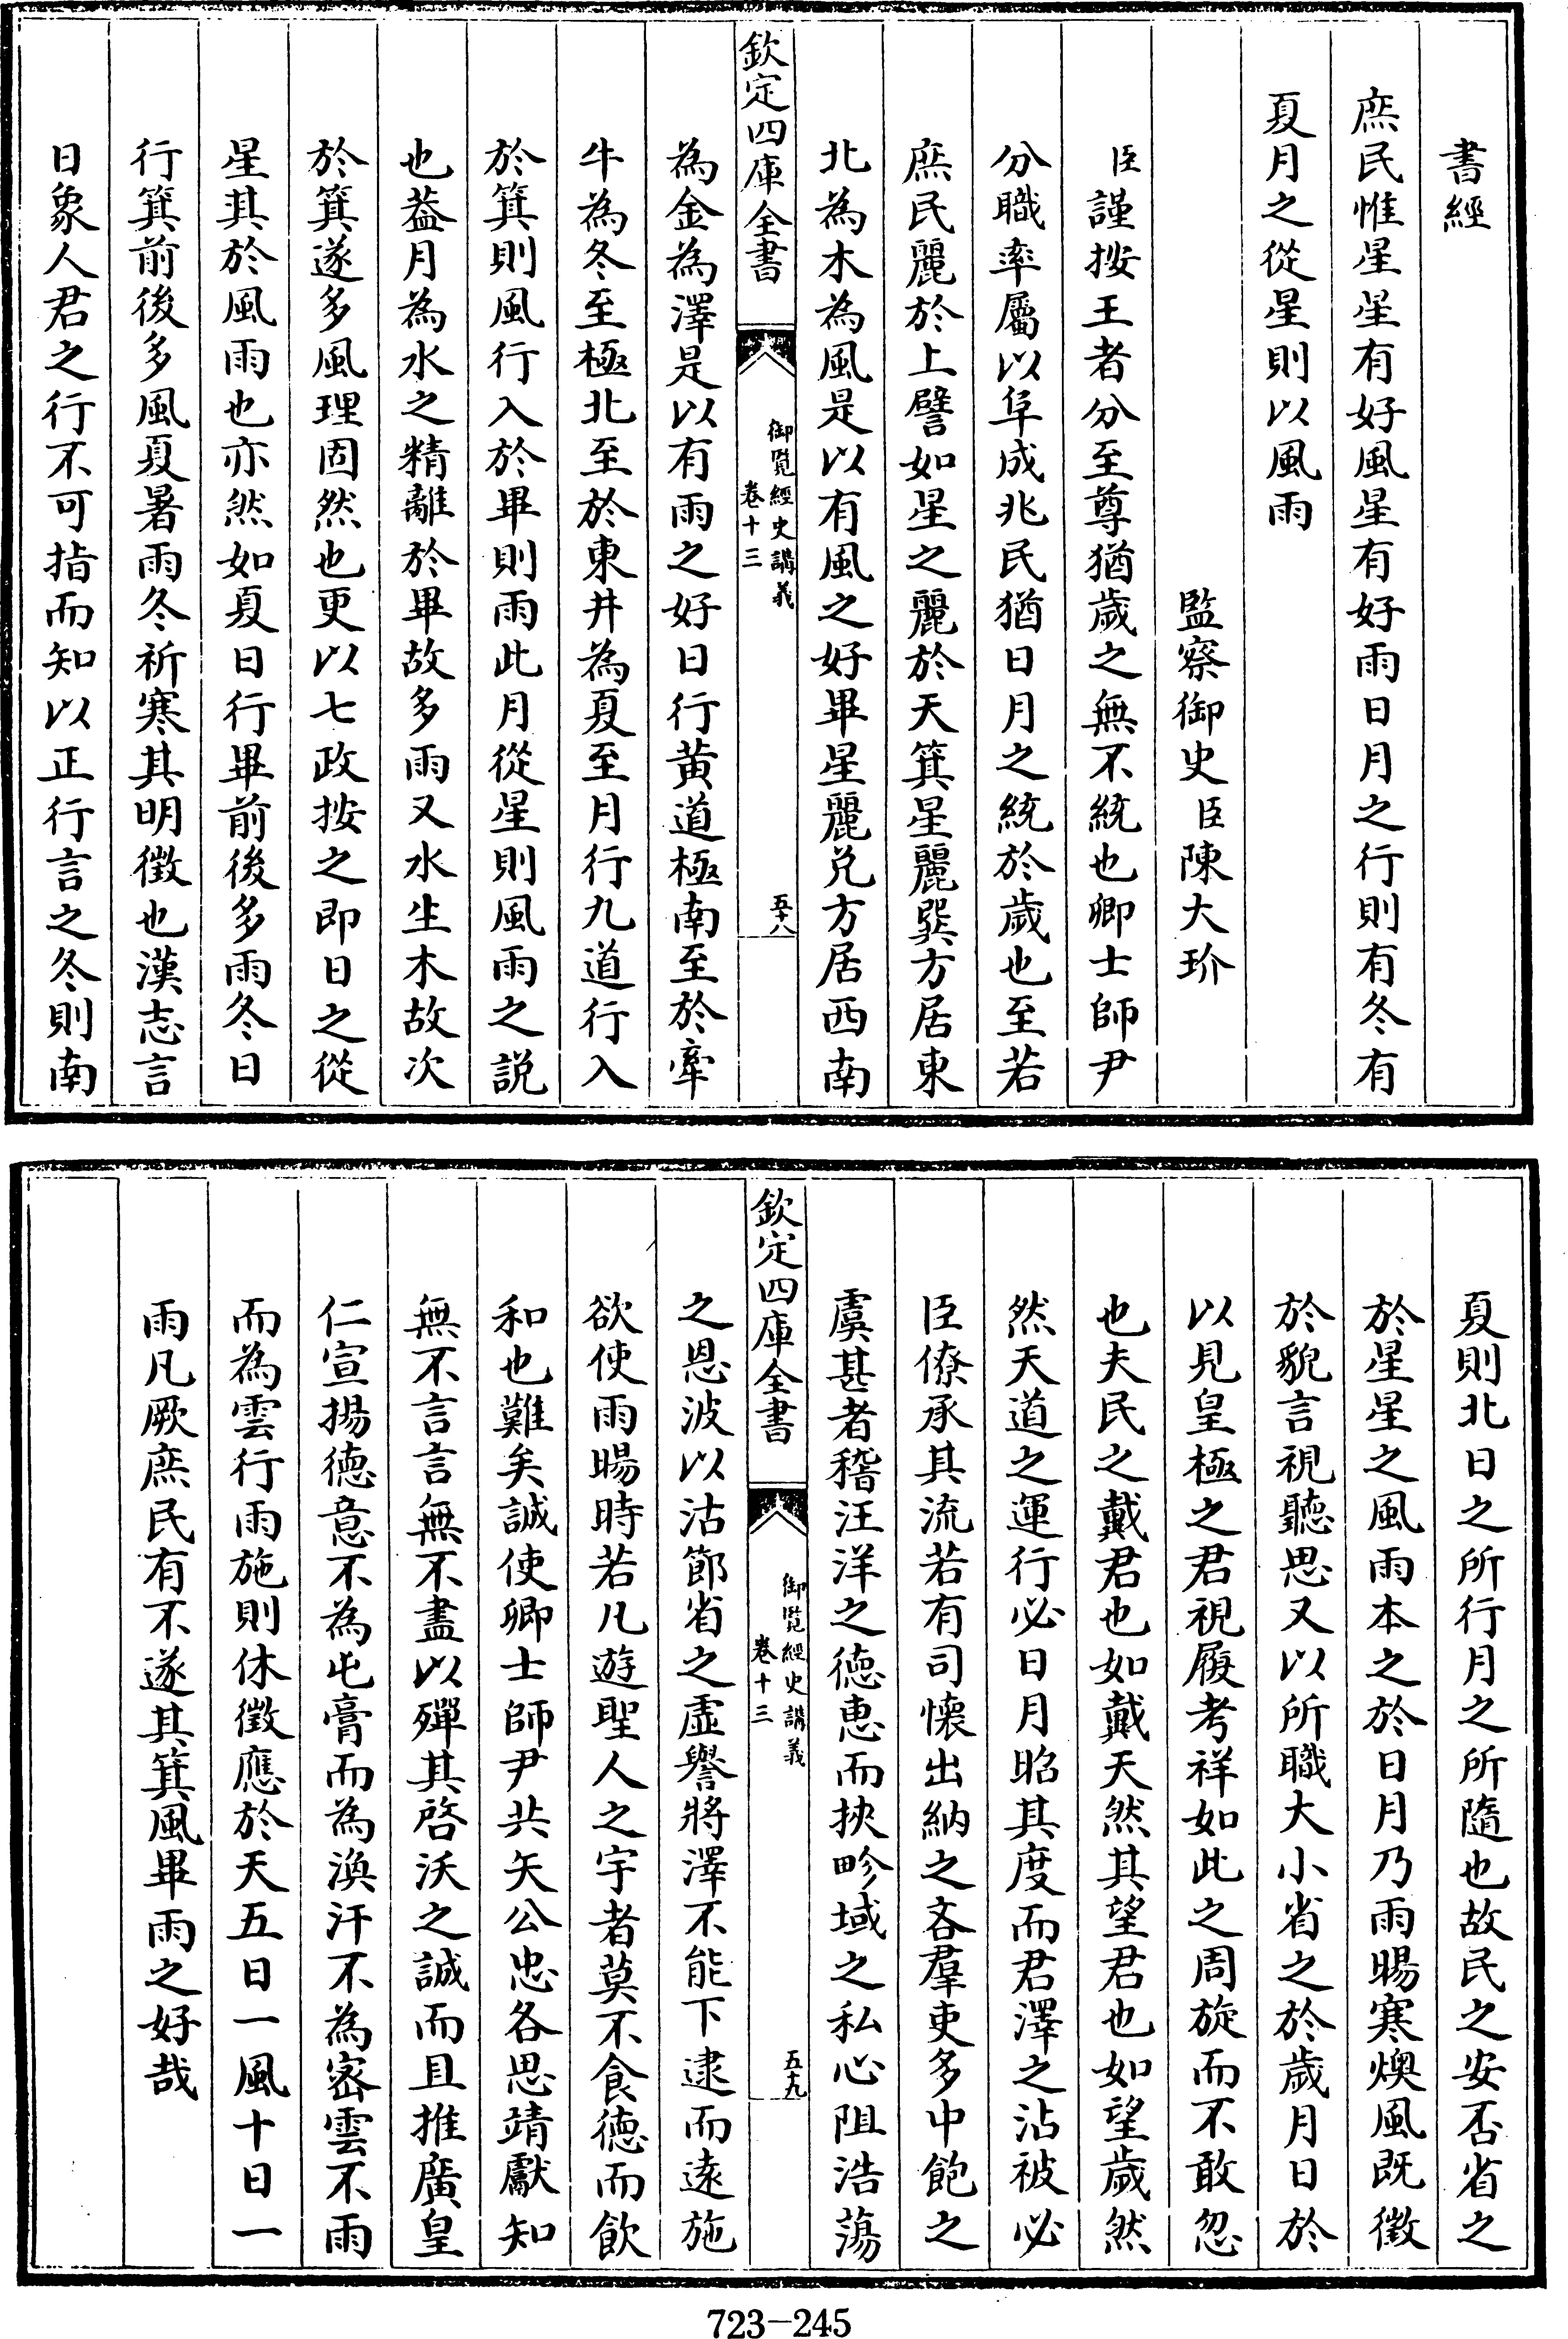 書經
庶民惟星星有好風星有好雨日月之行則有冬有
夏月之從星則以風雨
監察御史臣陳大玠
臣謹按王者分至尊猶歲之無不統也卿士師尹
分職率屬以阜成兆民猶日月之統於歲也至若
庶民麗於上譬如星之麗於天箕星麗巽方居東
北為木為風是以有風之好畢星麗兑方居西南
欽定四庫全書
御覽經史講義
卷十三
五十八
為金為澤是以有雨之好日行黄道極南至於牽
牛為冬至極北至於東井為夏至月行九道行入
於箕則風行入於畢則雨此月從星則風雨之説
也葢月為水之精離於畢故多雨又水生木故次
於箕遂多風理固然也更以七政按之即日之從
星其於風雨也亦然如夏日行畢前後多雨冬日
行箕前後多風夏暑雨冬祈寒其明徵也漢志言
日象人君之行不可指而知以正行言之冬則南
夏則北日之所行月之所隨也故民之安否省之
於星星之風雨本之於日月乃雨暘寒燠風既徵
於貌言視聽思又以所職大小省之於歲月日於
以見皇極之君視履考祥如此之周旋而不敢忽
也夫民之戴君也如戴天然其望君也如望歲然
然天道之運行必日月昭其度而君澤之沾被必
臣僚承其流若有司懷出納之吝羣吏多中飽之
虞甚者稽汪洋之德惠而挾畛域之私心阻浩蕩
欽定四庫全書
御覽經史講義
卷十三
五十九
之恩波以沽節省之虛譽將澤不能下逮而遠施
欲使雨暘時若凡遊聖人之宇者莫不食德而飲
和也難矣誠使卿士師尹共矢公忠各思靖獻知
無不言言無不盡以殫其啓沃之誠而且推廣皇
仁宣揚德意不為屯膏而為渙汗不為密雲不雨
而為雲行雨施則休徵應於天五日一風十日一
雨凡厥庶民有不遂其箕風畢雨之好哉
723-245